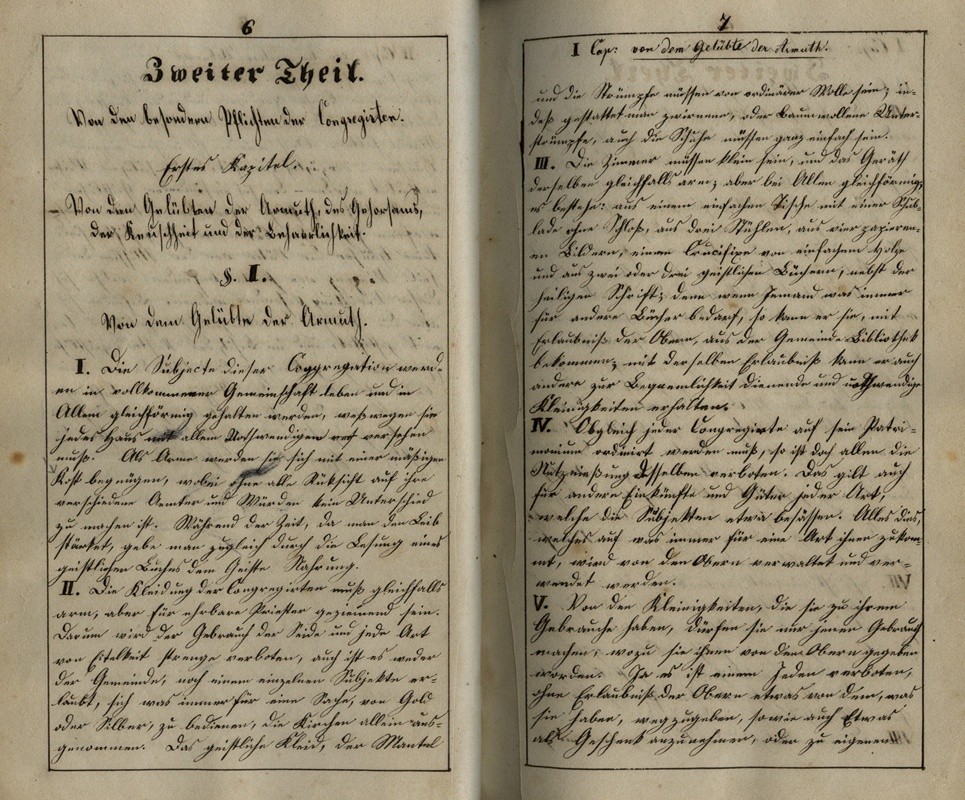 6
Zweiter Theil.
Von den besondern Pflichten der Congregirten.
Erstes Kapitel.
Von den Gelübten der Armuth, des Gehorsams,
der Keuschheit und der Beharrlichkeit.
§. I.
Von dem Gelübte der Armuth.
I. Die Subjecte dieser Coggregation werd-
en in vollkommener Gemeinschaft leben und in
Allem gleichförmig gehalten werden, weßwegen sie
jedes Haus mit allem Nothwendigen versehen
muß. Als Arme werden sie sich mit einer mäßigen
Kost begnügen, wobei ohne alle Rüksicht auf ihre
verschiedene Aemter und Würden kein Unterschied
zu machen ist. Während der Zeit, da man den Leib
stärket, gebe man zugleich durch die Lesung eines
geistlichen Buches dem Geiste Nahrung.
II. Die Kleidung der Congregirten muß gleichfalls
arm, aber für ehrbare Priester geziemend sein.
Darum wird der Gebrauch der Seide und jede Art
von Eitelkeit strenge verboten, auch ist es weder
der Gemeinde, noch einem einzelnen Subjekte er-
laubt, sich was immer für eine Sache, von Gold
oder Silber, zu bedienen, die Kirchen allein aus-
genommen. Das geistliche Kleid, der Mantel
7
I Cap: von dem Gelübte der Armuth.
und die Strümpfe müssen von ordinärer Wolle sein; in-
deß gestattet man zwirnene, oder baumwollene Unter-
strümpfe, auch die Schuhe müssen ganz einfach sein.
III. Die Zimmer müssen klein sein, und das Geräth
derselben gleichfalls arm; aber bei Allen gleichförmig;
es bestehe: aus einem einfachen Tische mit einer Schub-
lade ohne Schloß, aus drei Stühlen, aus vier papieren-
en Bildern, einem Crucifixe von einfachem Holze
und aus zwei oder drei geistlichen Büchern, nebst der
heiligen Schrift; denn wenn Jemand was immer
für andere Bücher bedarf, so kann er sie, mit
Erlaubniß der Obern, aus der Gemeinde Bibliothek
bekommen; mit derselben Erlaubniß kann er auch
andere zur Bequemlichkeit dienende und nothwendige
Kleinigkeiten erhalten.
IV. Obgleich jeder Congregirte auf sein Patri-
monium ordinirt werden muß, so ist doch allen die
Nutznießung desselben verboten. Das gilt auch
für andere Einkünfte und Güter jeder Art,
welche die Subjekten etwa besässen. Alles das,
welches auf was immer für eine Art ihnen zukom-
mt, wird von den Obern verwaltet und ver-
wendet werden.
V. Von den Kleinigkeiten, die sie zu ihrem
Gebrauche haben, dürfen sie nur jenen Gebrauch
machen, wozu sie ihnen von den Obern gegeben
worden. Ja es ist einem Jeden verboten,
ohne Erlaubniß der Obern etwas von dem, was
sie haben, wegzugeben, sowie auch Etwas
als Geschenk anzunehmen, oder zu eigenen